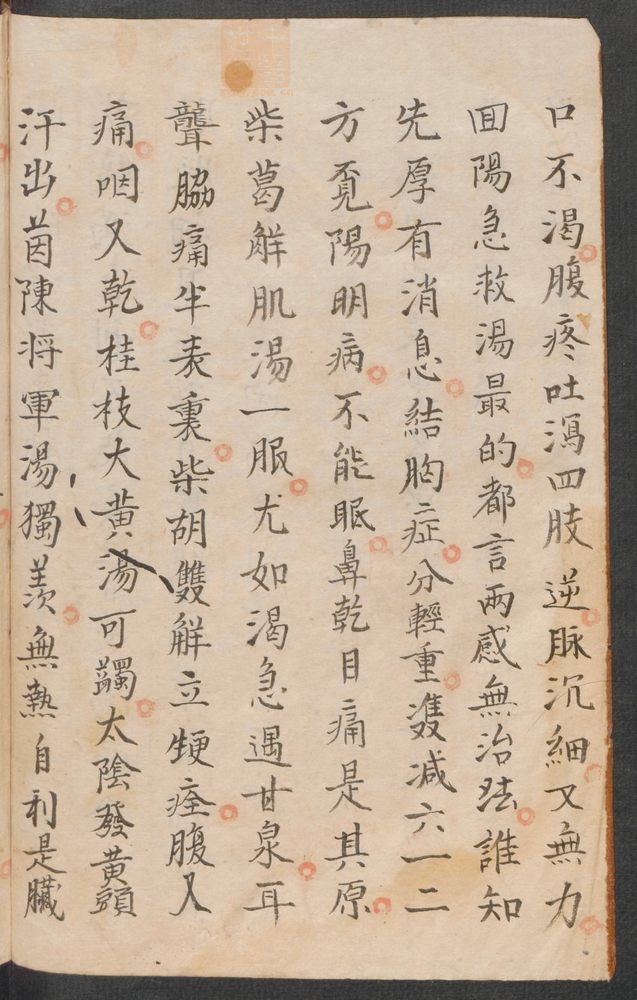 口不渴腹疼吐瀉四肢逆脉沉細又無力
囬陽急救湯最的都言兩感無治法誰知
先厚有消息結胸二症分輕重雙減六一二
方覔陽明病不能眠鼻乾目痛是其原
柴葛觧肌湯一服尤如渴急遇甘泉耳
聾脇痛半表裏柴胡雙觧立便痊腹又
痛咽又乾桂枝大黄湯可蠲太陰發黄頭
汗出茵陳将軍湯獨羨無熱自利是臟